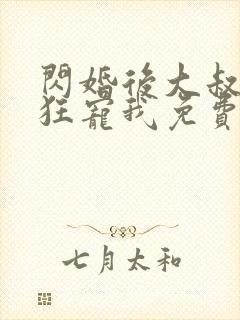 閃婚後大叔
狂寵我免費
七月太和